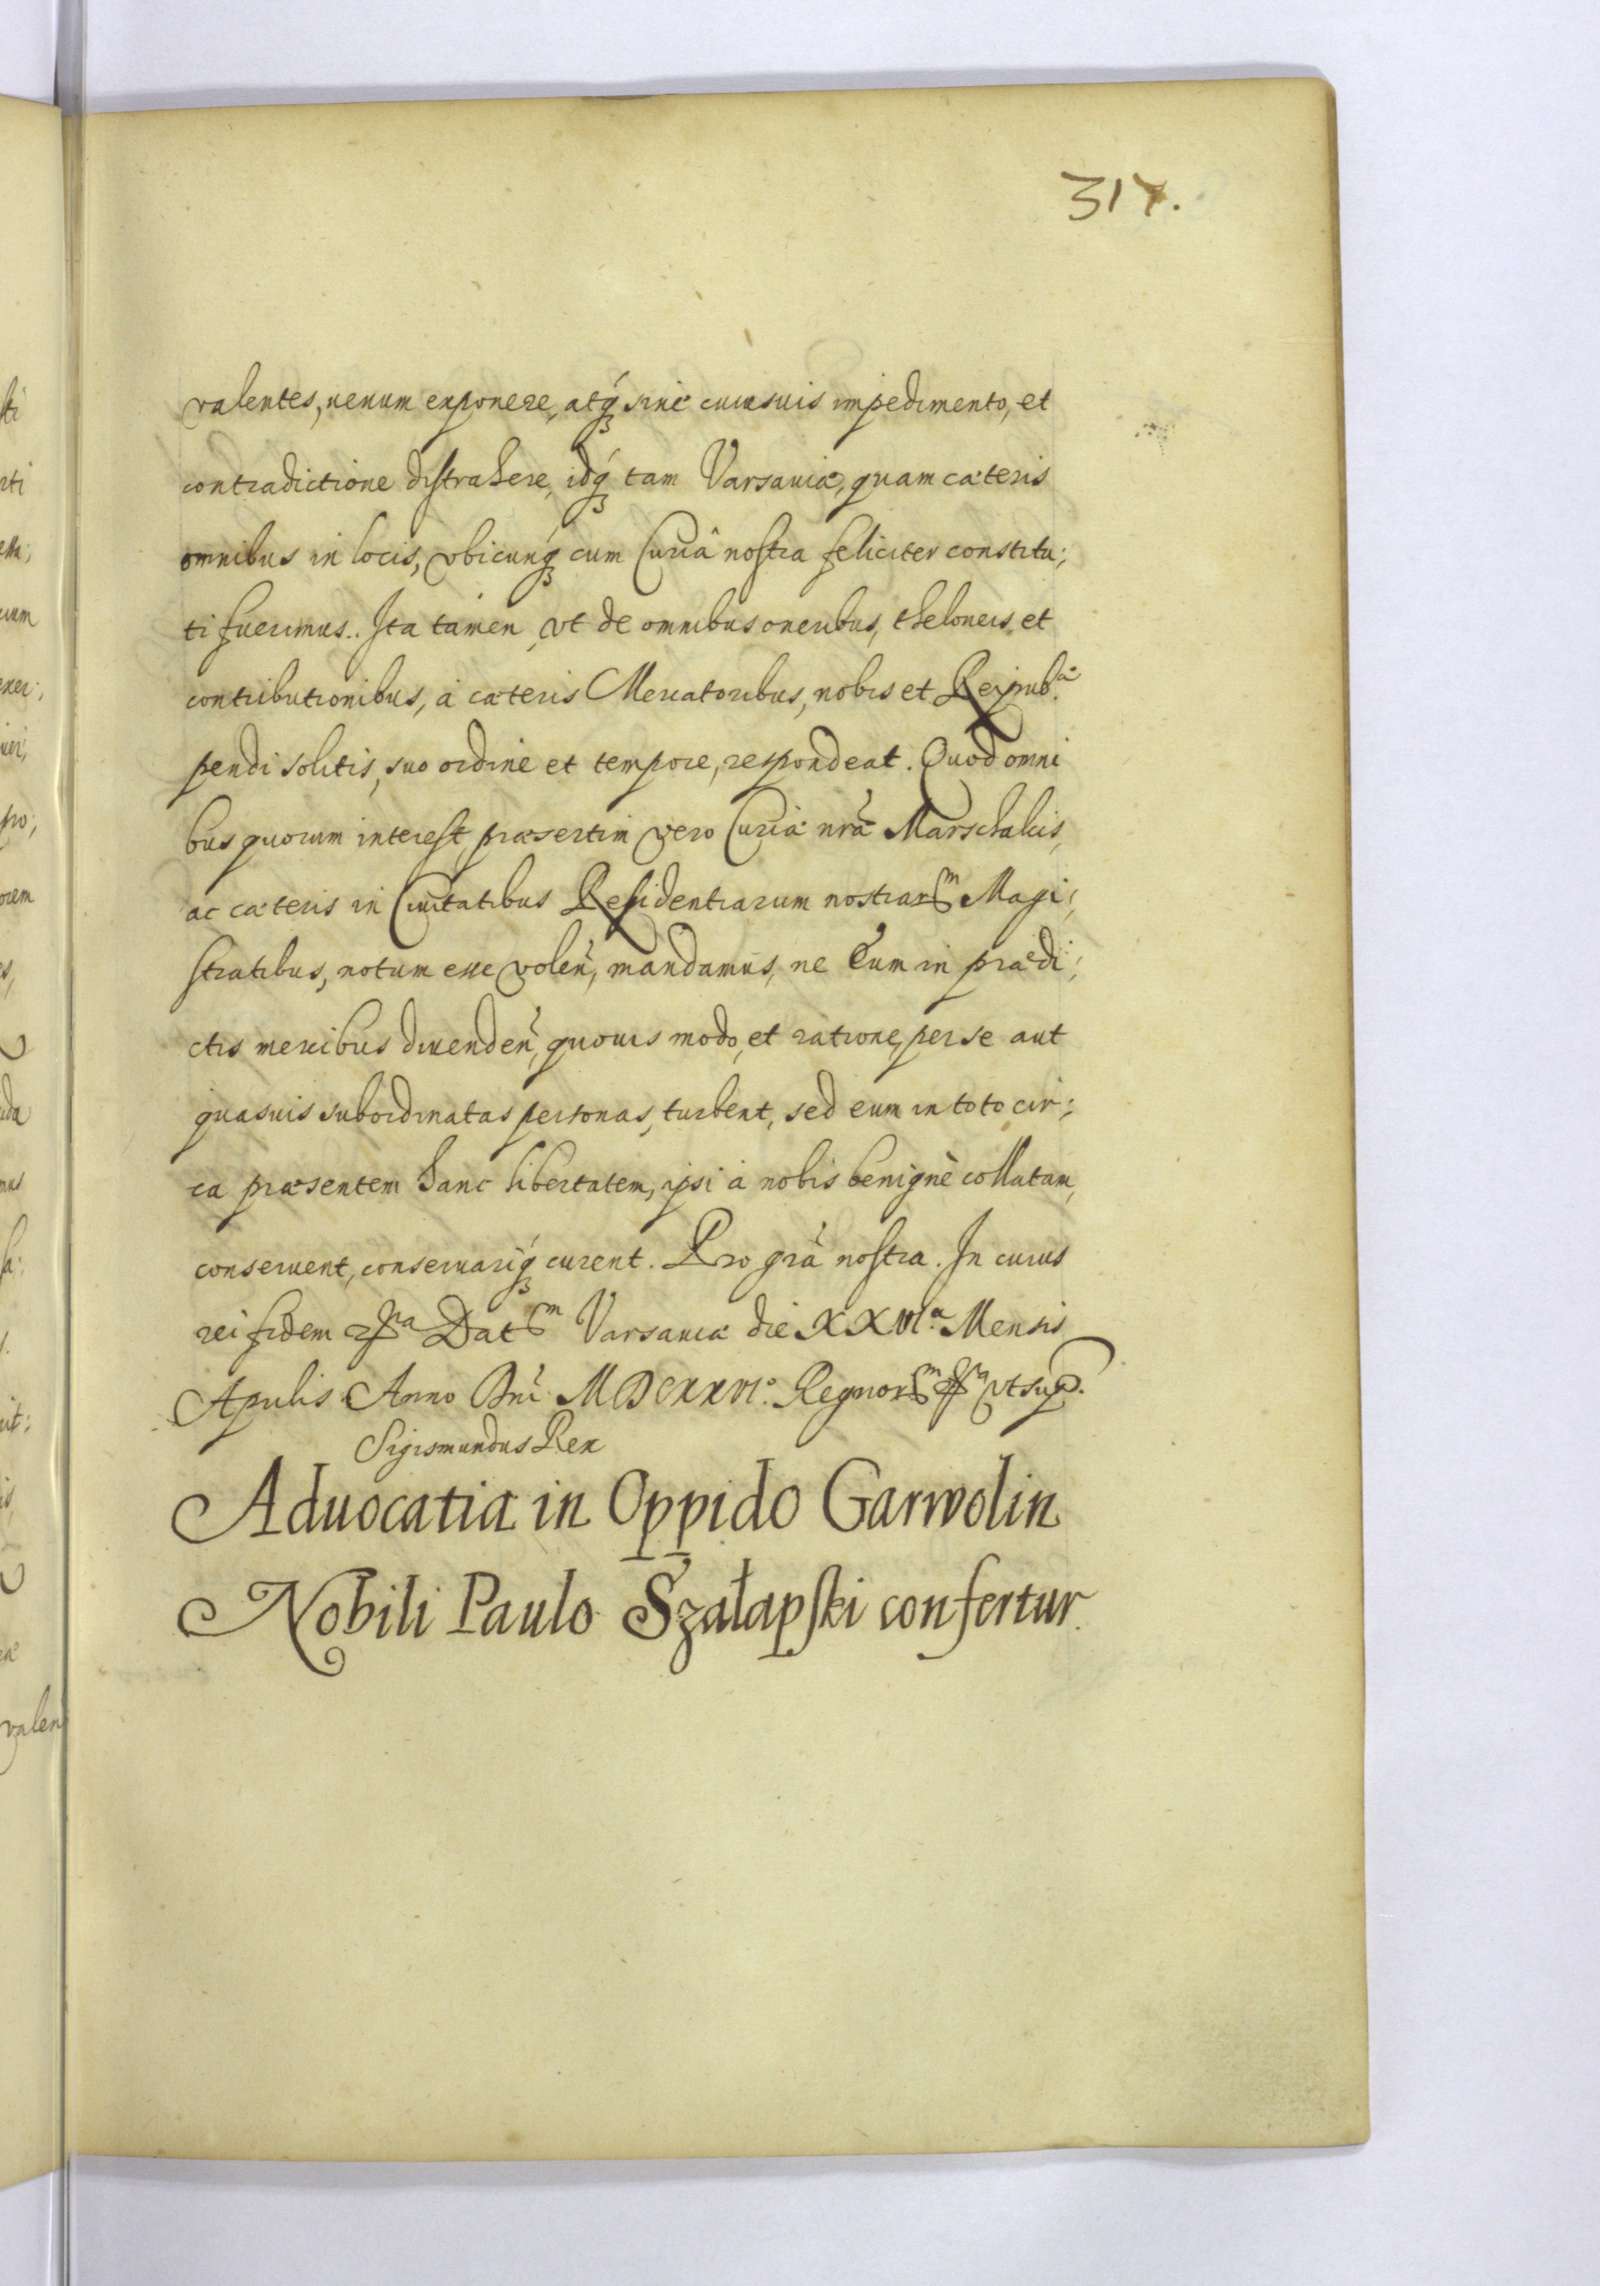 317.
valentes, uenum exponere, atq́ꝫ sine cuiusuis impedimento, et
contradictione distrahere, idq́ꝫ tam Varsauiæ, quam cæteris
omnibus in locis, vbicunq́ꝫ cum Curiâ nostra feliciter constitu;
ti fuerimus.. Ita tamen, vt de omnibus oneribus, theloneis et
contributionibus, à cæteris Mercatoribus, nobis et Reipub.æ
pendi solitis, suo ordine et tempore, respondeat. Quod omni
bus quorum interest, præsertim vero Curiæ nræ Marschalcis,
ac cæteris in Ciuitatibus Residentiarum nostrarm Magi;
stratibus, notum esse volen, mandamus, ne Eum in prædi;
ctis mercibus diuenden, quouis modo, et ratione, per se aut
quasuis subordinatas personas, turbent, sed eum in toto cir;
ca præsentem hanc libertatem, ipsi à nobis benignè collatam,
conseruent, conseruariq́ꝫ curent. Pro gra nostra. In cuius
rei fidem Datm Varsauiæ die XXVI.a Mensis
Aprilis Anno Dni MDCXXVI.o Regnorm vt sup.
Sigismundus Rex
Aduocatia in Oppido Garwolin
Nobili Paulo Szałapski confertur.
sti
valen